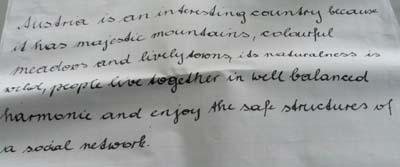 Austria is an interesting country because
it has majestic mountains, colourful
meadows and lively towns, its naturalness is
people live together in well balanced
harmonie and enjoy the safe structures of
a social network.